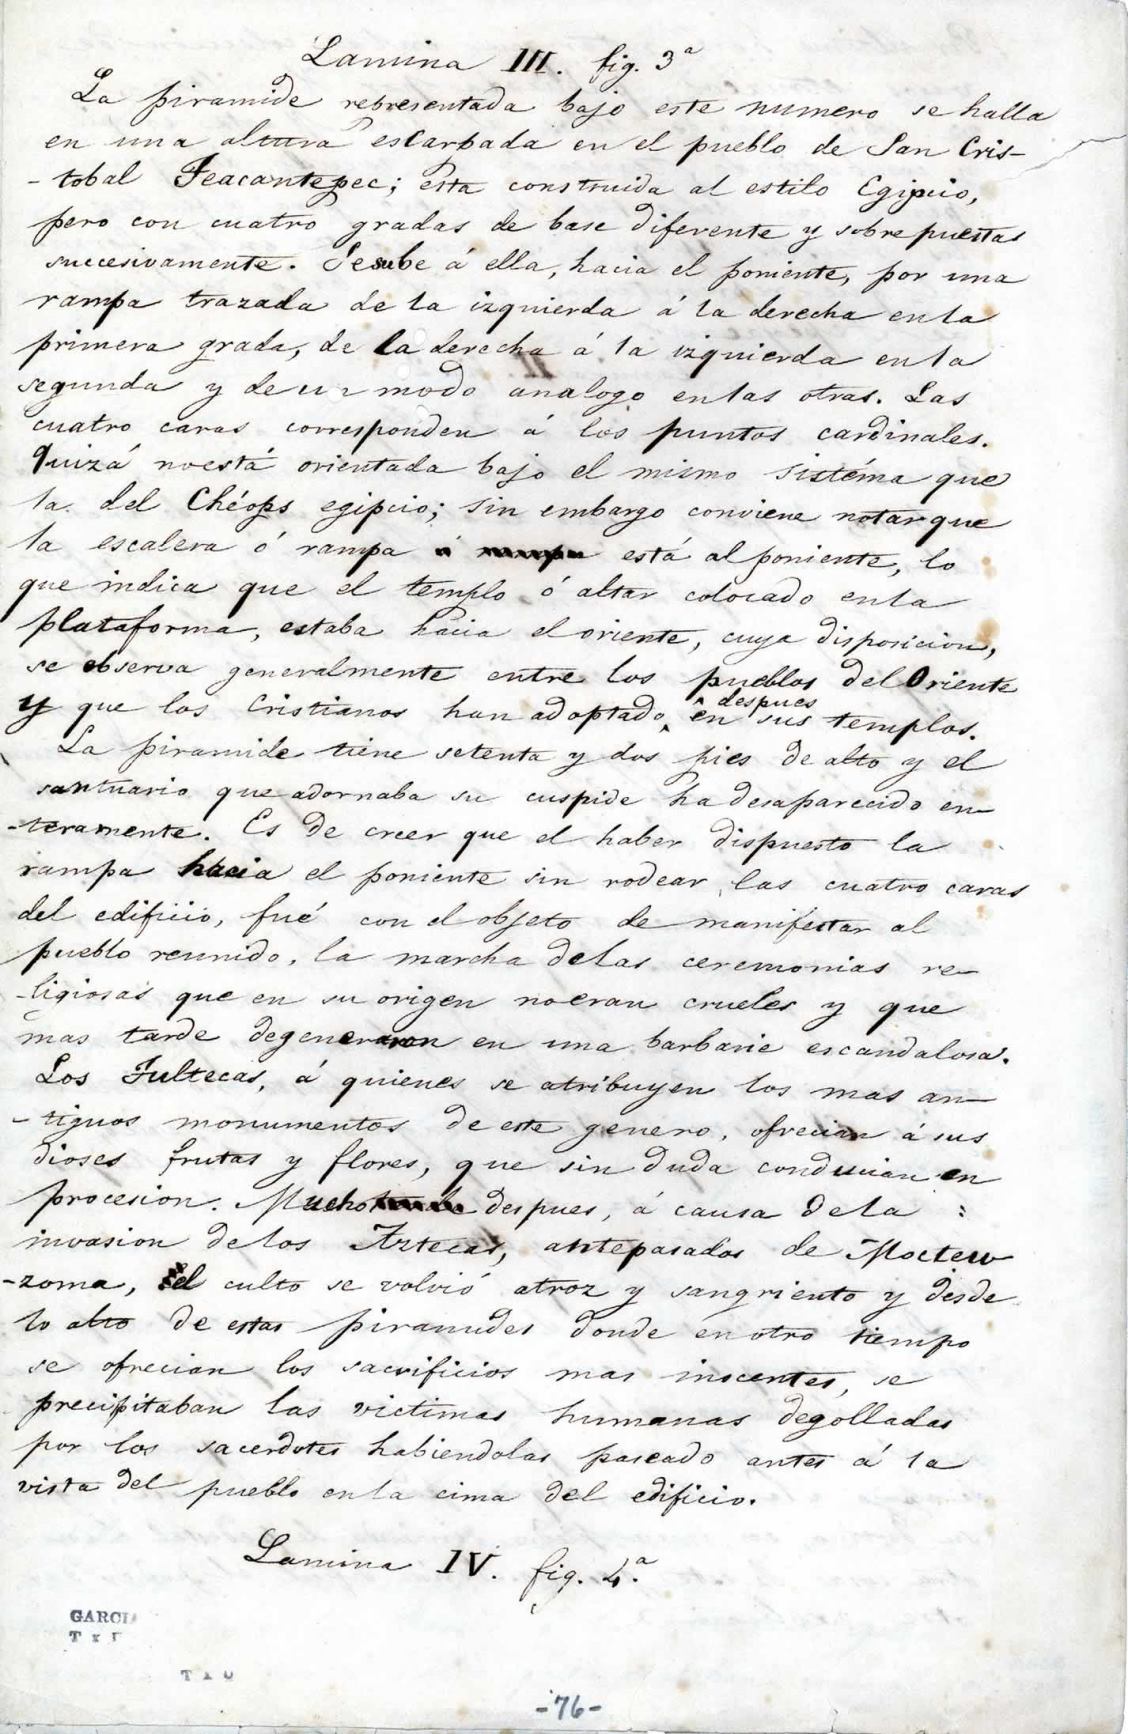 Lamina III. fig. 3ª
La piramide representada bajo este numero se halla
en una altura escarpada en el pueblo de San Cris-
-tobal Teacantepec; esta construida al estilo Egipcio,
pero con cuatro gradas de base diferente y sobrepuestas
succesivamente. Se sube á ella, hacia el poniente, por una
rampa trazada de la izquierda á la derecha en la
primera grada, de la derecha á la izquierda en la
segunda y de un modo analogo en las otras. Las
cuatro caras corresponden á los puntos cardinales.
Quizá no está orientada bajo el mismo sistéma que
la del Chéops egipcio; sin embargo conviene notar que
la escalera ó rampa está al poniente, lo
que indica que el templo ó altar colocado en la
plataforma, estaba hacia el oriente, cuya disposicion,
se observa generalmente entre los pueblos del Oriente
y que los Cristianos han adoptado despues en sus templos.
La piramide tiene setenta y dos pies de alto y el
santuario que adornaba su cuspide ha desaparecido en-
-teramente. Es de creer que el haber dispuesto la
rampa hacia el poniente sin rodear las cuatro caras
del edificio, fué con el objeto de manifestar al
pueblo reunido, la marcha de las ceremonias re-
-ligiosas que en su origen no eran crueles y que
mas tarde degeneraron en una barbarie escandalosa.
Los Tultecas, á quienes se atribuyen los mas an-
-tiguos monumentos de este genero, ofrecian á sus
dioses frutas y flores, que sin duda conducian en
procesion. Mucho despues, á causa de la
invasion de los Aztecas, antepasados de Mocteu-
-zoma, el culto se volvió atroz y sangriento y desde
lo alto de estas piramides donde en otro tiempo
se ofrecian los sacrificios mas inocentes, se
precipitaban las victimas humanas degolladas
por los sacerdotes habiendolas paseado antes á la
vista del pueblo en la cima del edificio.
Lamina IV. fig. 4.ª
GARCI
-76-